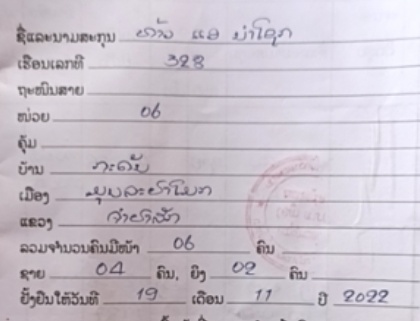 ຊື່ແລະນາມສະກຸນ ທ້າວ ແອ ນຳໂຊກ
ເຮືອນເລກທີ 328
ຖະໜົນສາຍ
ໜ່ວຍ 06
ຄຸ້ມ
ບ້ານ
ເມືອງ
ແຂວງ ຈຳປາສັກ
ລວມຈຳນວນຄົນມີໜ້າ 06 ຄົນ
ຊາຍ 04 ຄົນ, ຍິງ 02 ຄົນ
ຢັ້ງຢືນໃຫ້ວັນທີ 19 ເດືອນ 11 ປີ 2022